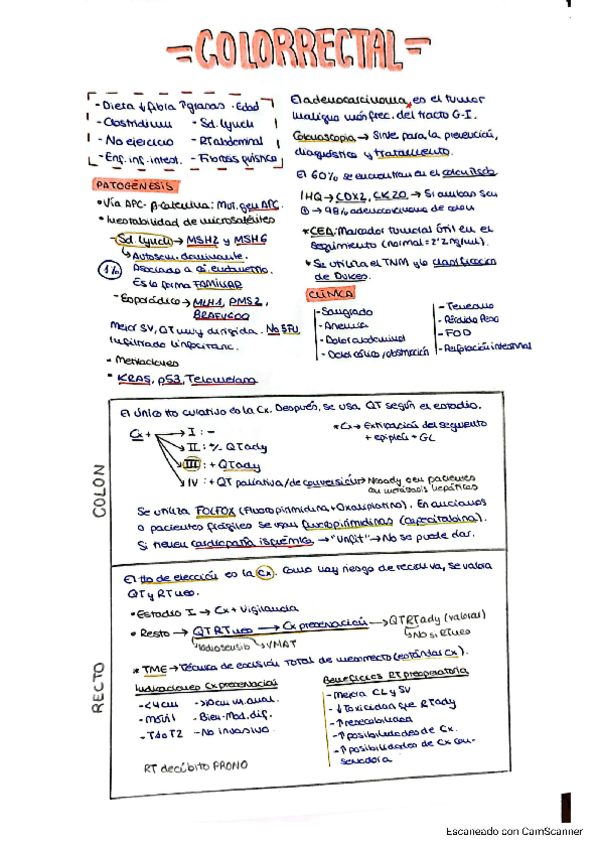 =COLORRECTAL=
- Dieta ↓ fibra ↑grasas · Edad
- Clostridium - Sd. Lynch
- No ejercicio - RT abdominal
- Enf. inf. intest. - Fibrosis quística
El adenocarcinoma, es el tumor
maligno más frec. del tracto G-I.
Colonoscopia → Sirve para la prevención,
diagnóstico y tratamiento.
El 60% se encuentran en el colon izdo
IHQ → CDX2, CK20 → Si ambas son
⊕ → 98% adenocarcinoma de colon
* CEA: Marcador tumoral útil en el
seguimiento (normal = 2'2 ng/ml).
* Se utiliza el TNM y la clasificación
de Dukes.
PATOGÉNESIS
• Vía APC-β-catenina: Mut. gen APC.
• Inestabilidad de microsatélites
- Sd. Lynch → MSH2 y MSH6
↳ Autosom. dominante.
1%
Asociado a ca. endometrio.
Es la forma FAMILIAR
- Esporádico → MLH1, PMS2,
BRAFV600
Mejor SV, QT muy dirigida. No 5FU
Infiltrado linfocitario.
• Mutaciones
• KRAS, p53, Telomerasa
CLÍNICA
- Sangrado
- Anemia
- Dolor abdominal
- Dolor cólico/obstrucción
- Tenesmo
- Pérdida Peso
- FOD
- Perforación intestinal
COLON
El único tto curativo es la Cx. Después, se usa QT según el estadio.
Cx +
I : -
II : +/- QTady
III : + QTady
IV : + QT paliativa/de conversión → Neoady en pacientes
con metástasis hepáticas
* Cx → Extirpación del segmento
+ epiplón + GL
Se utiliza FOLFOX (Fluoropirimidina + Oxaliplatino). En ancianos
o pacientes frágiles se usan fluoropirimidinas (capecitabina).
Si tienen cardiopatía isquémica → "Unfit" → No se puede dar.
RECTO
El tto de elección es la Cx. Como hay riesgo de recidiva, se valora
QT y RT neo.
• Estadio I → Cx + Vigilancia
• Resto → QTRTneo → Cx preservación → QTRTady (valorar)
↳ No si RTneo
Radiosensib ↳ VMAT
* TME → Técnica de escisión total de mesorrecto (estándar Cx).
Indicaciones Cx preservación
- <4cm
- Móvil
- T1 o T2
- Bien-Mod. dif.
- No invasivo
Beneficios RT preoperatoria
- Mejora CL y SV
- ↓ Toxicidad que RTady
- ↑ resecabilidad
- ↑ posibilidades de Cx.
- ↑ posibilidades de Cx con-
servadora
RT decúbito PRONO
Escaneado con CamScanner